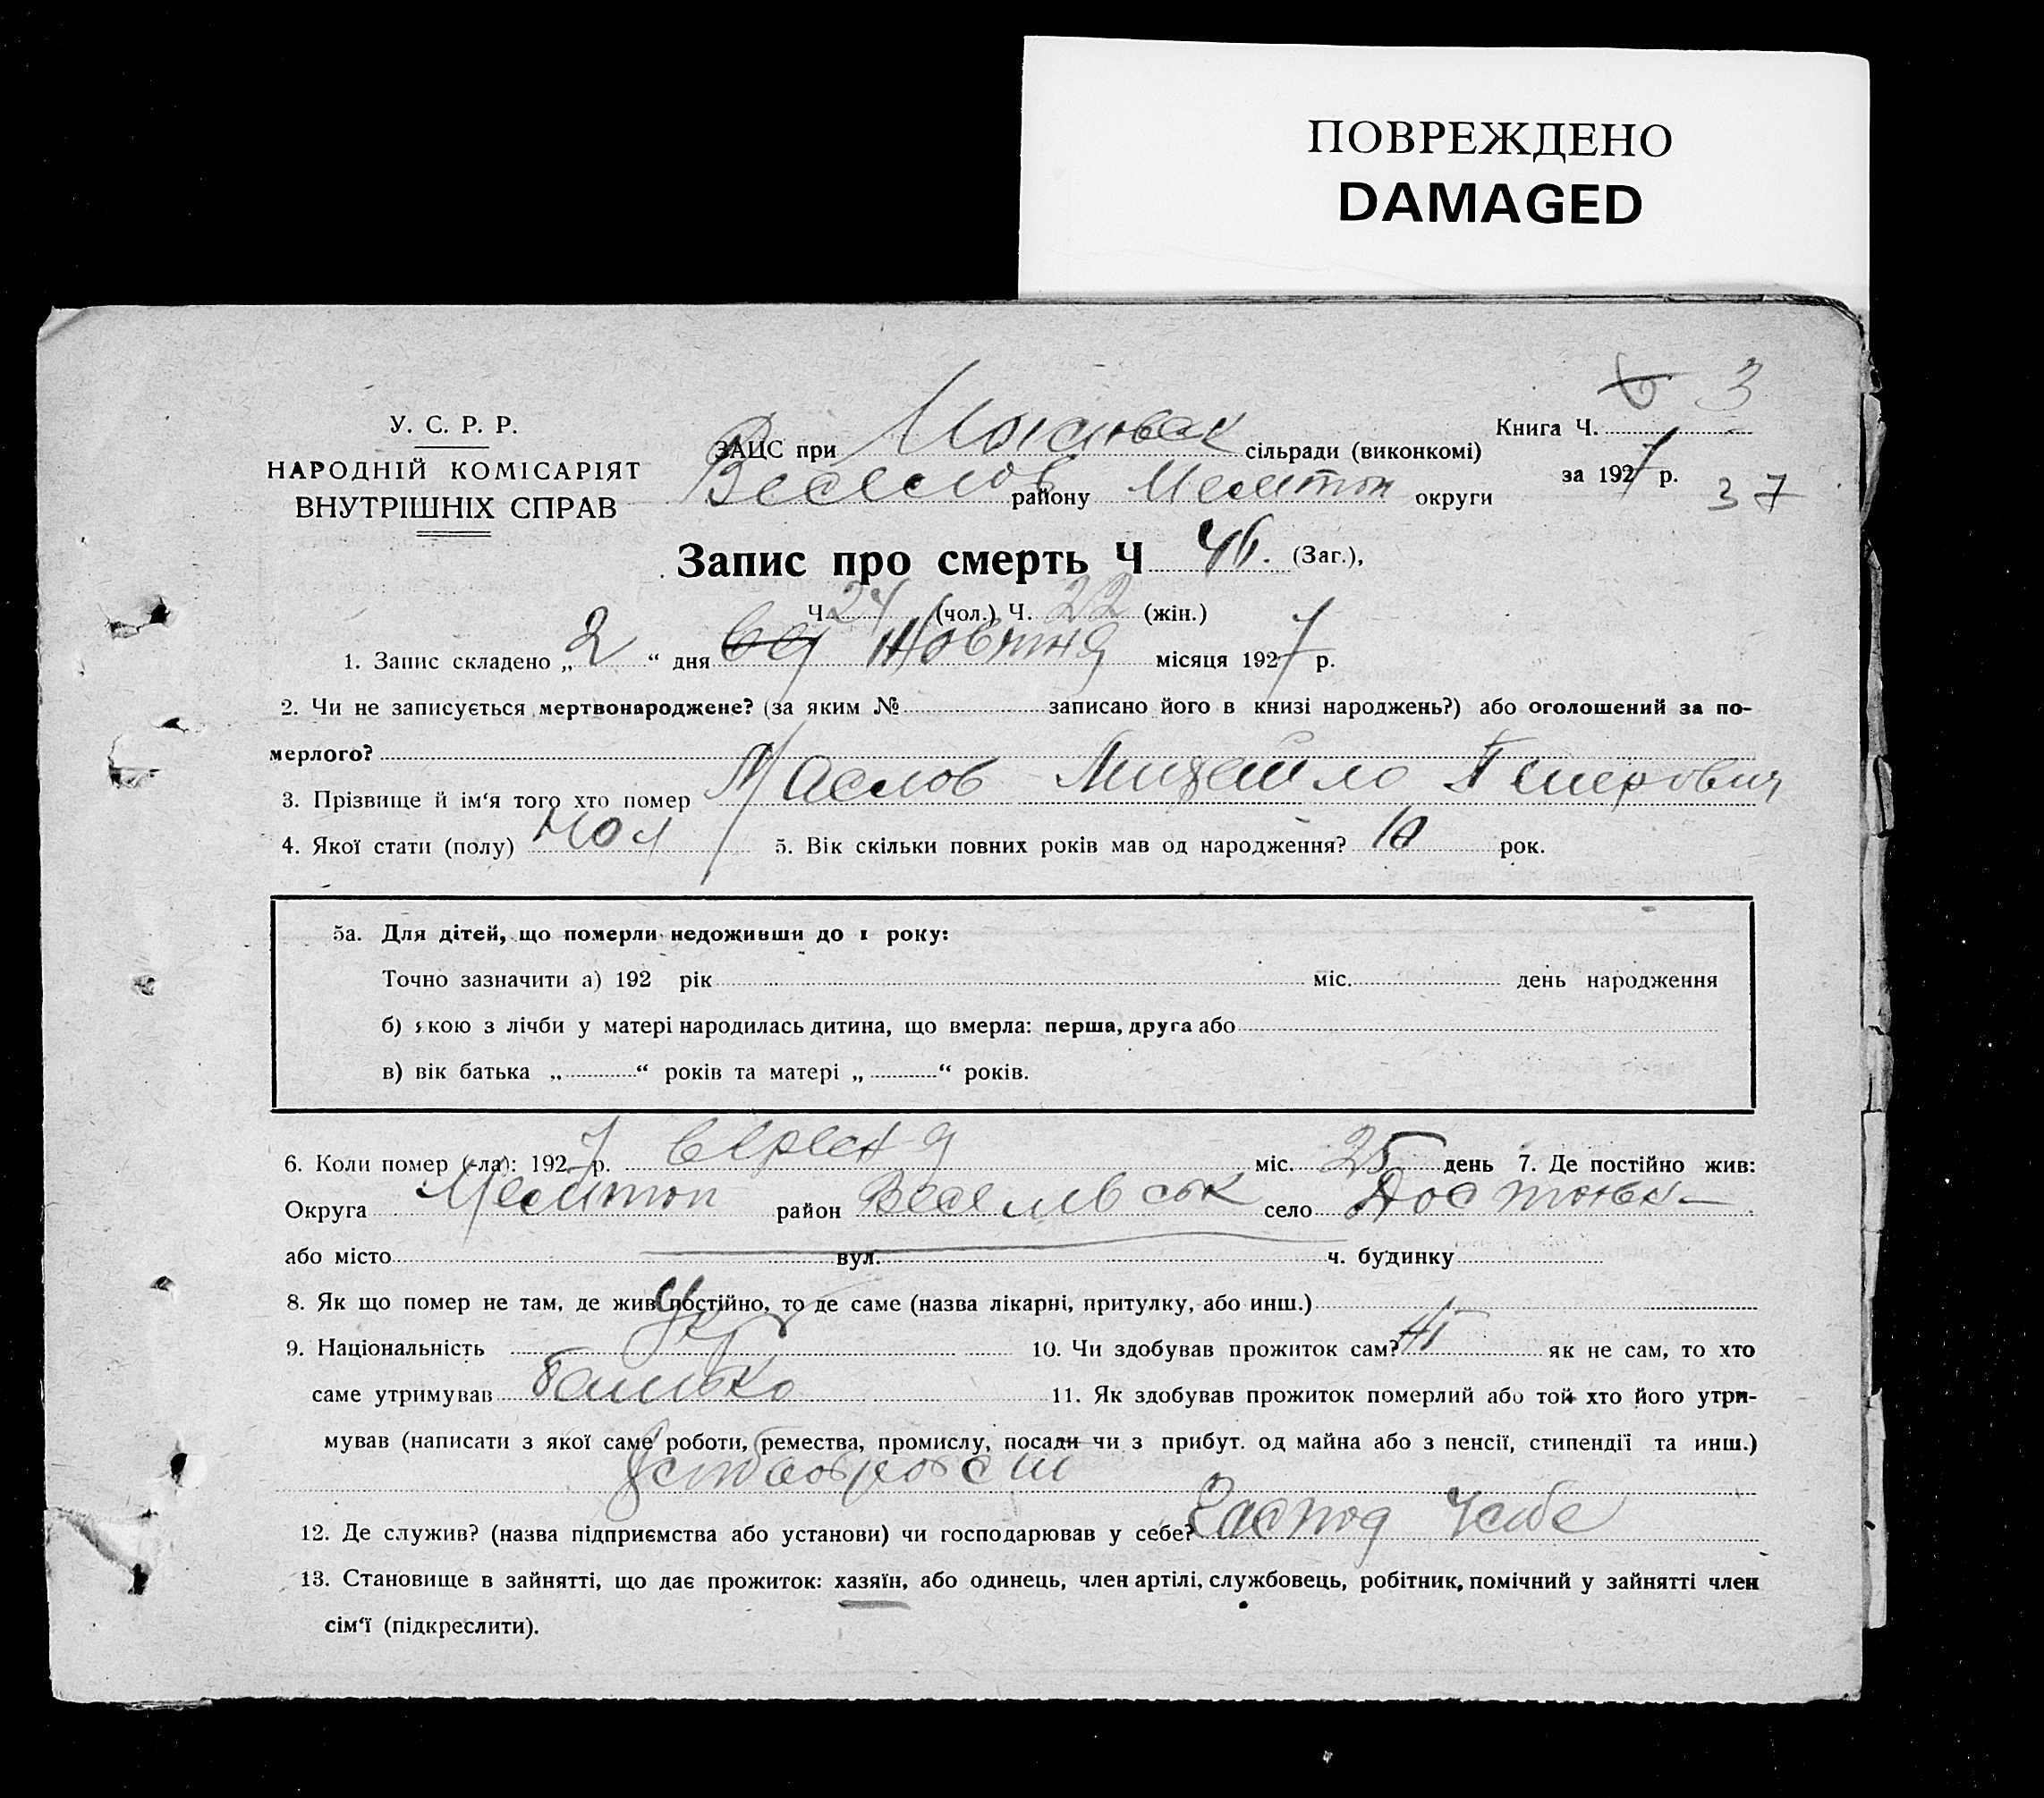 ПОВРЕЖДЕНО
DAMAGED
У. С. Р. Р.
НАРОДНІЙ КОМІСАРІЯТ
ВНУТРІШНІХ СПРАВ
Книга Ч. 3
за 1927 р.
37
ЗАЦС при сільради (виконкомі)
Веселов району Мелітоп округи
Запис про смерть Ч 46. (Заг.),
Ч 24 (чол.) Ч. 22 (жін.)
1. Запис складено „2“ дня Жовтня місяця 1927 р.
2. Чи не записується мертвонароджене? (за яким № записано його в книзі народжень?) або оголошений за по-
мерлого?
3. Прізвище й ім‘я того хто помер Маслов Михайло Петрович
4. Якої стати (полу) чол 5. Вік скільки повних років мав од народження? 10 рок.
5а. Для дітей, що померли недоживши до 1 року:
Точно зазначити а) 192 рік міс. день народження
б) якою з лічби у матері народилась дитина, що вмерла: перша, друга або
в) вік батька „ “ років та матері „ “ років.
6. Коли помер (-ла): 1927 р. вересня міс. 25 день 7. Де постійно жив:
Округа Мелітоп район Веселівськ село
або місто вул. ч. будинку
8. Як що помер не там, де жив постійно, то де саме (назва лікарні, притулку, або инш.)
9. Національність Укр 10. Чи здобував прожиток сам? ні як не сам, то хто
саме утримував батько 11. Як здобував прожиток померлий або той хто його утри-
мував (написати з якої саме роботи, ремества, промислу, посади чи з прибут. од майна або з пенсії, стипендії та инш.)
12. Де служив? (назва підприємства або установи) чи господарював у себе? Господ у себе
13. Становище в зайнятті, що дає прожиток: хазяїн, або одинець, член артілі, службовець, робітник, помічний у зайнятті член
сім‘ї (підкреслити).